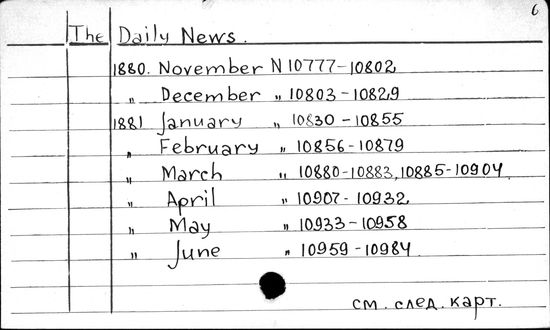 6
The Daily News.
1880. November N 10777-10802
„ December „ 10803-10829
1881 January „ 10830-10855
„ February „ 10856-10879
„ March „ 10880-10883, 10885-10904
„ April „ 10907-10932
„ May „ 10933-10958
„ June „ 10959-10984
см. след. карт.